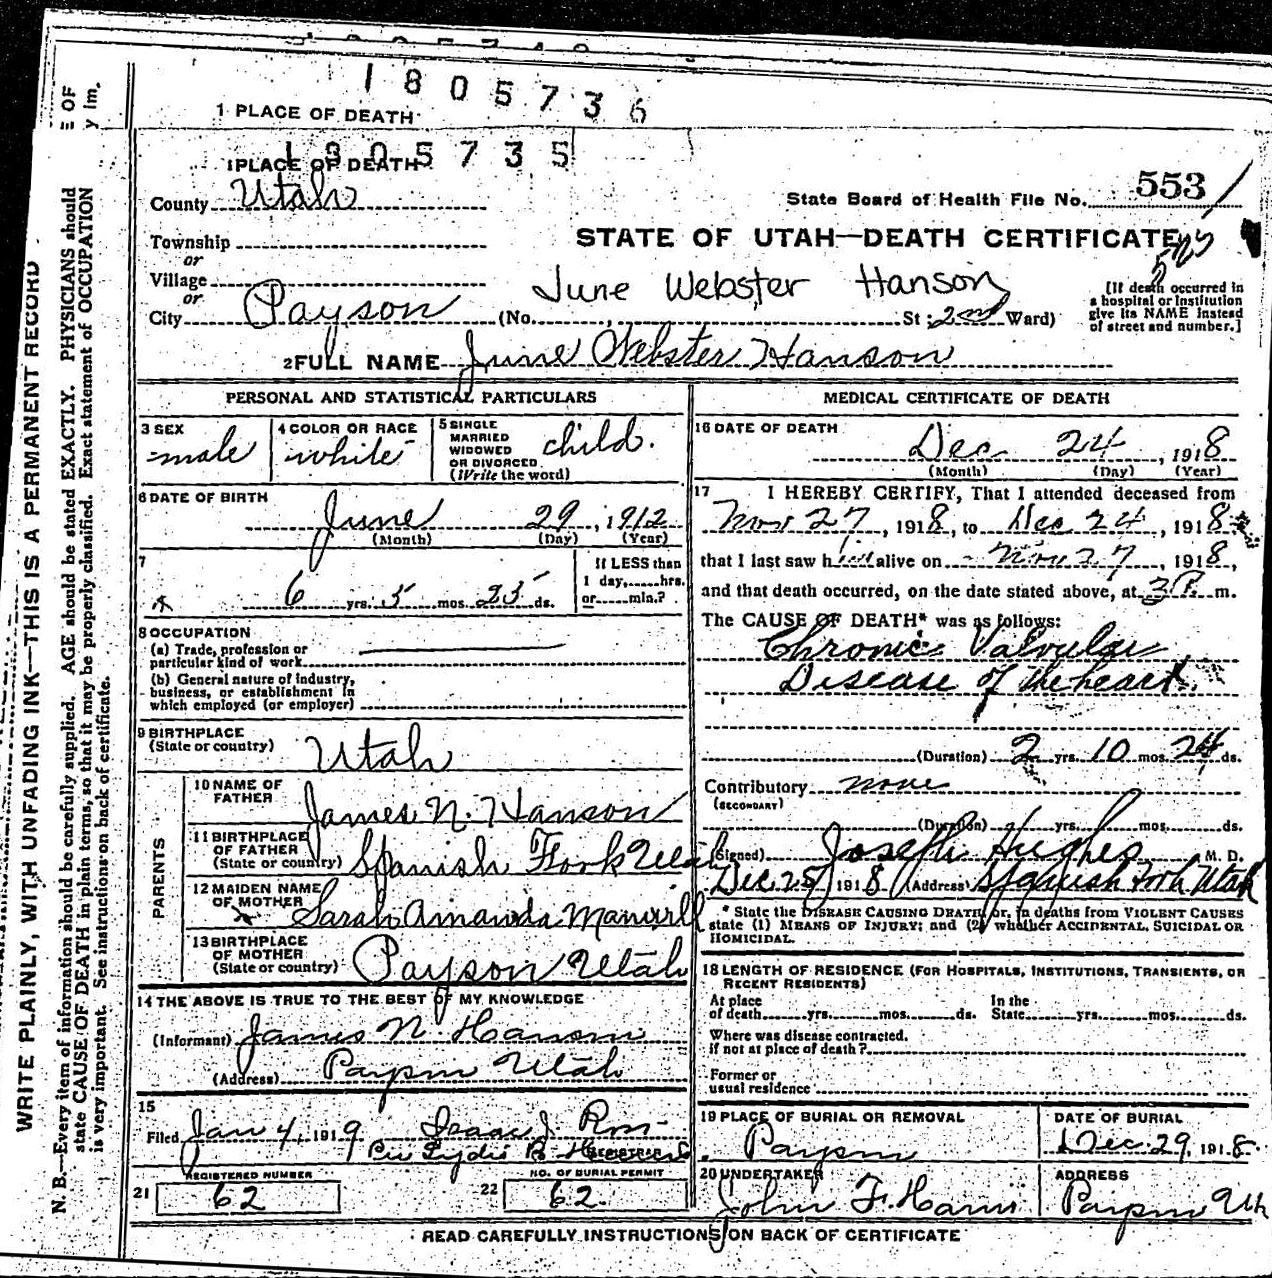 1805736
1 PLACE OF DEATH
1 PLACE OF DEATH 1805735
County Utah
State Board of Health File No. 553
Township
or
Village
or
STATE OF UTAH—DEATH CERTIFICATE
525
June Webster Hanson
City Payson (No. , St; 2nd Ward)
[If death occurred in
a hospital or institution
give its NAME instead
of street and number.]
2 FULL NAME June Webster Hanson
PERSONAL AND STATISTICAL PARTICULARS
3 SEX
male
4 COLOR OR RACE
white
5 SINGLE
MARRIED
WIDOWED
OR DIVORCED
(Write the word)
child.
6 DATE OF BIRTH
June 29, 1912
(Month) (Day) (Year)
7
6 yrs. 5 mos. 25 ds.
If LESS than
1 day, hrs.
or min.?
8 OCCUPATION
(a) Trade, profession or
particular kind of work
(b) General nature of industry,
business, or establishment in
which employed (or employer)
9 BIRTHPLACE
(State or country)
Utah
PARENTS
10 NAME OF
FATHER
James N. Hanson
11 BIRTHPLACE
OF FATHER
(State or country)
Spanish Fork Utah
12 MAIDEN NAME
OF MOTHER
Sarah Amanda Manwill
13 BIRTHPLACE
OF MOTHER
(State or country)
Payson Utah
14 THE ABOVE IS TRUE TO THE BEST OF MY KNOWLEDGE
(Informant) James N. Hanson
(Address) Payson Utah
15
Filed Jan 4, 1919 Isaac J
REGISTRAR
REGISTERED NUMBER
21 62
NO. OF BURIAL PERMIT
22 62
MEDICAL CERTIFICATE OF DEATH
16 DATE OF DEATH
Dec 24, 1918
(Month) (Day) (Year)
17 I HEREBY CERTIFY, That I attended deceased from
Nov 27, 1918, to Dec 24, 1918
that I last saw him alive on Nov 27, 1918,
and that death occurred, on the date stated above, at 3 P. m.
The CAUSE OF DEATH* was as follows:
Chronic Valvular
Disease of the heart.
(Duration) 2 yrs. 10 mos. 24 ds.
Contributory none
(SECONDARY)
(Duration) yrs. mos. ds.
(Signed) Joseph Hughes M. D.
Dec 25, 1918 (Address) Spanish Fork Utah
* State the DISEASE CAUSING DEATH, or, in deaths from VIOLENT CAUSES
state (1) MEANS OF INJURY; and (2) whether ACCIDENTAL, SUICIDAL OR
HOMICIDAL.
18 LENGTH OF RESIDENCE (FOR HOSPITALS, INSTITUTIONS, TRANSIENTS, OR
RECENT RESIDENTS)
At place
of death yrs. mos. ds.
In the
State yrs. mos. ds.
Where was disease contracted.
if not at place of death?
Former or
usual residence
19 PLACE OF BURIAL OR REMOVAL
Payson
DATE OF BURIAL
Dec 29, 1918.
20 UNDERTAKER
John F.
ADDRESS
Payson Utah
READ CAREFULLY INSTRUCTIONS ON BACK OF CERTIFICATE
WRITE PLAINLY, WITH UNFADING INK—THIS IS A PERMANENT RECORD
N. B.—Every item of information should be carefully supplied. AGE should be stated EXACTLY. PHYSICIANS should
state CAUSE OF DEATH in plain terms, so that it may be properly classified. Exact statement of OCCUPATION
is very important. See instructions on back of certificate.